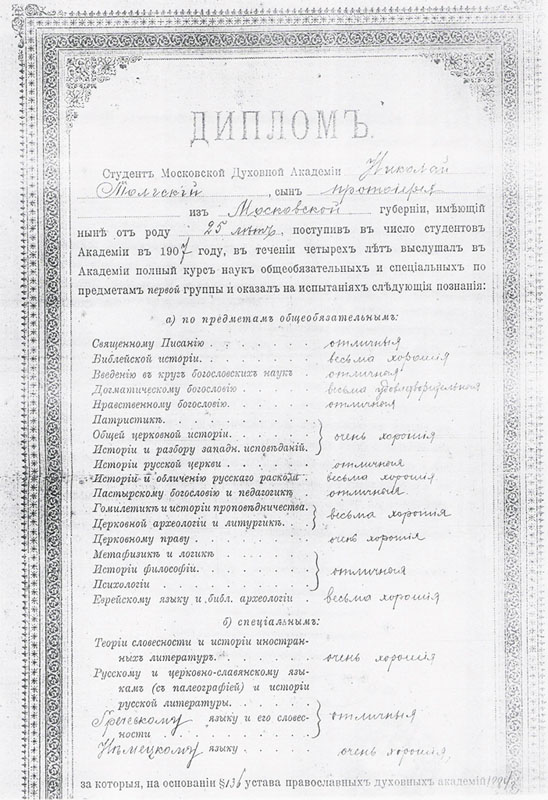 ДИПЛОМЪ.
Студент Московской Духовной Академіи Николай
Толгскій, сын протоіерея
из Московской губерніи, имѣющій
нынѣ от роду 25 лѣтъ, поступив въ число студентов
Академіи въ 1907 году, въ теченіи четырех лѣт выслушал въ
Академіи полный курс наук общеобязательных и спеціальных по
предметам первой группы и оказал на испытаніях слѣдующія познанія:
а) по предметамъ общеобязательнымъ:
Священному Писанію . . . . . . . отличныя
Библейской исторіи. . . . . . . . весьма хорошія
Введенію въ круг богословских наук . . отличныя
Догматическому богословію . . . . . весьма удовлетворительныя
Нравственному богословію. . . . . . отличныя
Патристикѣ. . . . . . . . . .
Общей церковной исторіи. . . . . . очень хорошія
Исторіи и разбору западн. исповѣданій.
Исторіи русской церкви . . . . . . отличныя
Исторіи и обличенію русскаго раскола . весьма хорошія
Пастырскому богословію и педагогикѣ . отличныя.
Гомилетикѣ и исторіи проповѣдничества.
Церковной археологіи и литургикѣ. . . весьма хорошія
Церковному праву . . . . . . . очень хорошія
Метафизикѣ и логикѣ . . . . . .
Исторіи философіи. . . . . . . . отличныя
Психологіи . . . . . . . . . .
Еврейскому языку и библ. археологіи . весьма хорошія
б) спеціальнымъ:
Теоріи словесности и исторіи иностран-
ных литературъ. . . . . . . очень хорошія
Русскому и церковно-славянскому язы-
кам (съ палеографіей) и исторіи
русской литературы. . . . . .
Греческому языку и его словес- отличныя
ности . . . . . . . .
Нѣмецкому языку . . . . . . очень хорошія,
за которыя, на основаніи § 136 устава православных духовных академій